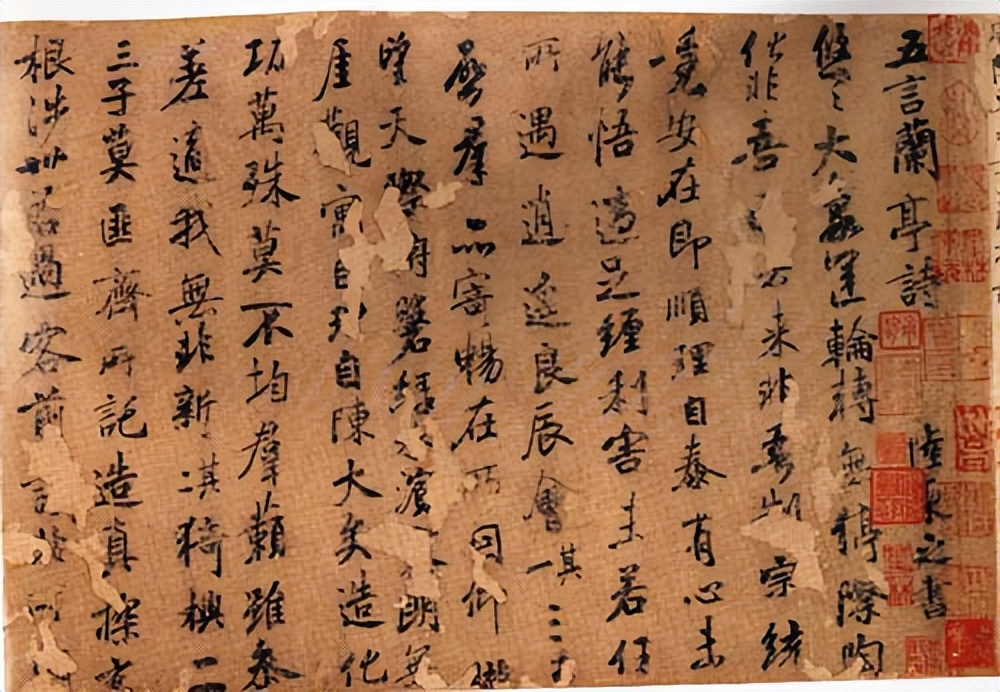 五言蘭亭詩 陸柬之書
悠〻大象運輪轉無停際陶
化非吾去来非吾制宗統
竟安在即順理自泰有心未
能悟適足纏利害未若任
所遇逍遥良辰會 其一 三春
啓羣品寄暢在所因仰
望天際俯磐緑水濱朗無
厓觀寓目自陳大矣造化
功萬殊莫不均羣籟雖參
差適我無非新 其二 猗與二
三子莫匪齊所託造真探玄
根涉世若過客前